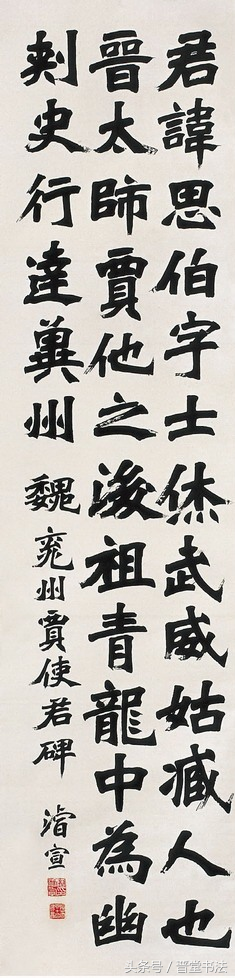 君諱思伯字士休武威姑臧人也
晉太師賈他之後祖青龍中為幽
刺史行達冀州
魏兗州賈使君碑
濬宣
头条号 / 晋堂书法